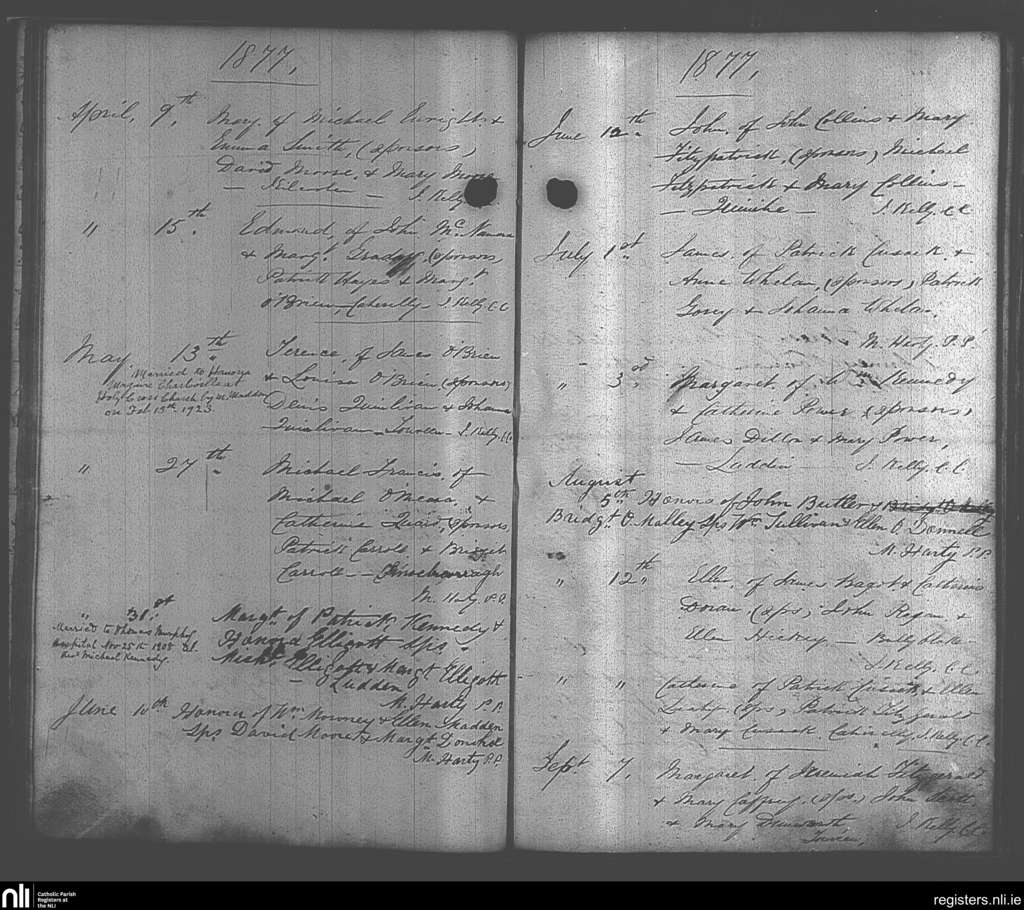 1877,
April, 9th, Mary, of Michael Enright &
Emma Smith, (sponsors,
David Moore, & Mary Moore
— — J. Kelly
" 15th Edmund, of John McNamara
& Margt. (sponsors,
Patrick Hayes & Margt.
O'Brien, Caherelly – J. Kelly C.C.
May 13th Terence, of James O'Brien
& Louisa O'Brien (sponsors)
Denis Quinlivan & Johanna
Quinlivan – Toureen – J. Kelly C.C.
Married to Honora
Maguire at
Holy Cross Church by W. Madden
on Feb 13th 1923
" 27th Michael Francis, of
Michael O'Meara, &
Catherine Quaid, sponsors,
Patrick Carroll & Bridget
Carroll —
M. Harty P.P.
" 31st Margt. of Patrick Kennedy &
Honora Elligott Sps.
Michl. Elligott & Margt Elligott
– Ludden
M. Harty P.P.
Married to Thomas Murphy
Hospital Nov 25th 1908
Revd Michael Kennedy.
June 10th Honora of Wm Mowney & Ellen Madden
Sps David Moore & Margt
M. Harty P.P.
1877,
June 12th John, of John Collins & Mary
Fitzpatrick, (sponsors, Michael
Fitzpatrick & Mary Collins –
— — J. Kelly, CC
July 1st James, of Patrick Cusack, &
Anne Whelan, (sponsors, Patrick
& Johanna Whelan.
M. Harty P.P.
" 3rd Margaret, of Wm Kennedy
& Catherine Power (sponsors,
James Dillon & Mary Power,
— Luddin — J. Kelly, C.C.
August
5th Honora of John Butler &
Bridgt. O'Malley Sps Wm Sullivan & Ellen O'Donnell
M. Harty P.P.
" 12th Ellen, of James Bagot & Catherine
Doran, (sps, John Regan &
Ellen Hickey —
J. Kelly, C.C.
" " Catherine of Patrick Cusack & Ellen
(sps, Patrick Fitzgerald
& Mary Cusack, Caherelly, J. Kelly C.C.
Sept. 7, Margaret, of Jeremiah Fitzgerald
& Mary Caffrey, (sps, John
& Mary
Toureen, J. Kelly, C.C.
nli
Catholic Parish
Registers at
the NLI
registers.nli.ie